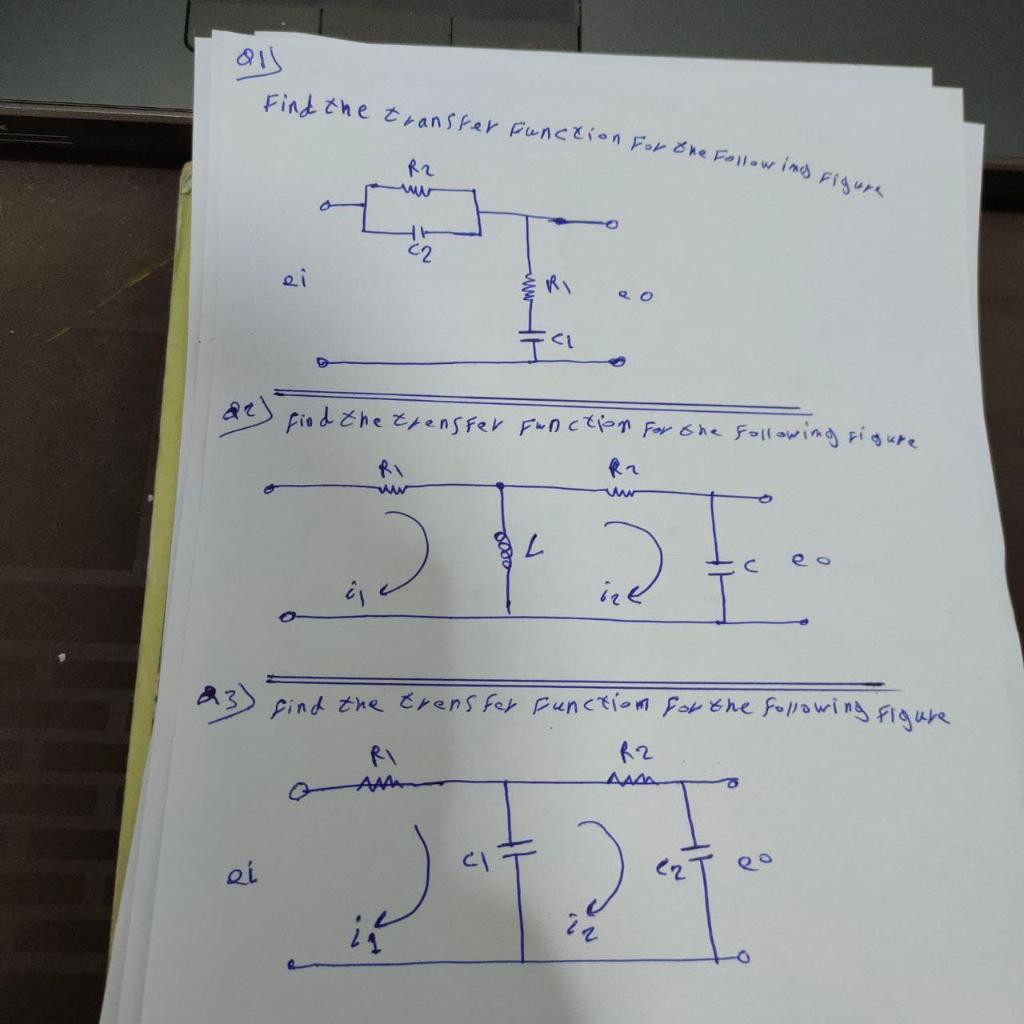 Q1)
Find the transfer Function For the Following Figure
R2
C2
ei
R1
eo
C1
Q2) Find the transfer Function For the Following Figure
R1
R2
L
C
eo
i1
i2
Q3) Find the transfer Function For the Following Figure
R1
R2
C1
C2
eo
ei
i1
i2